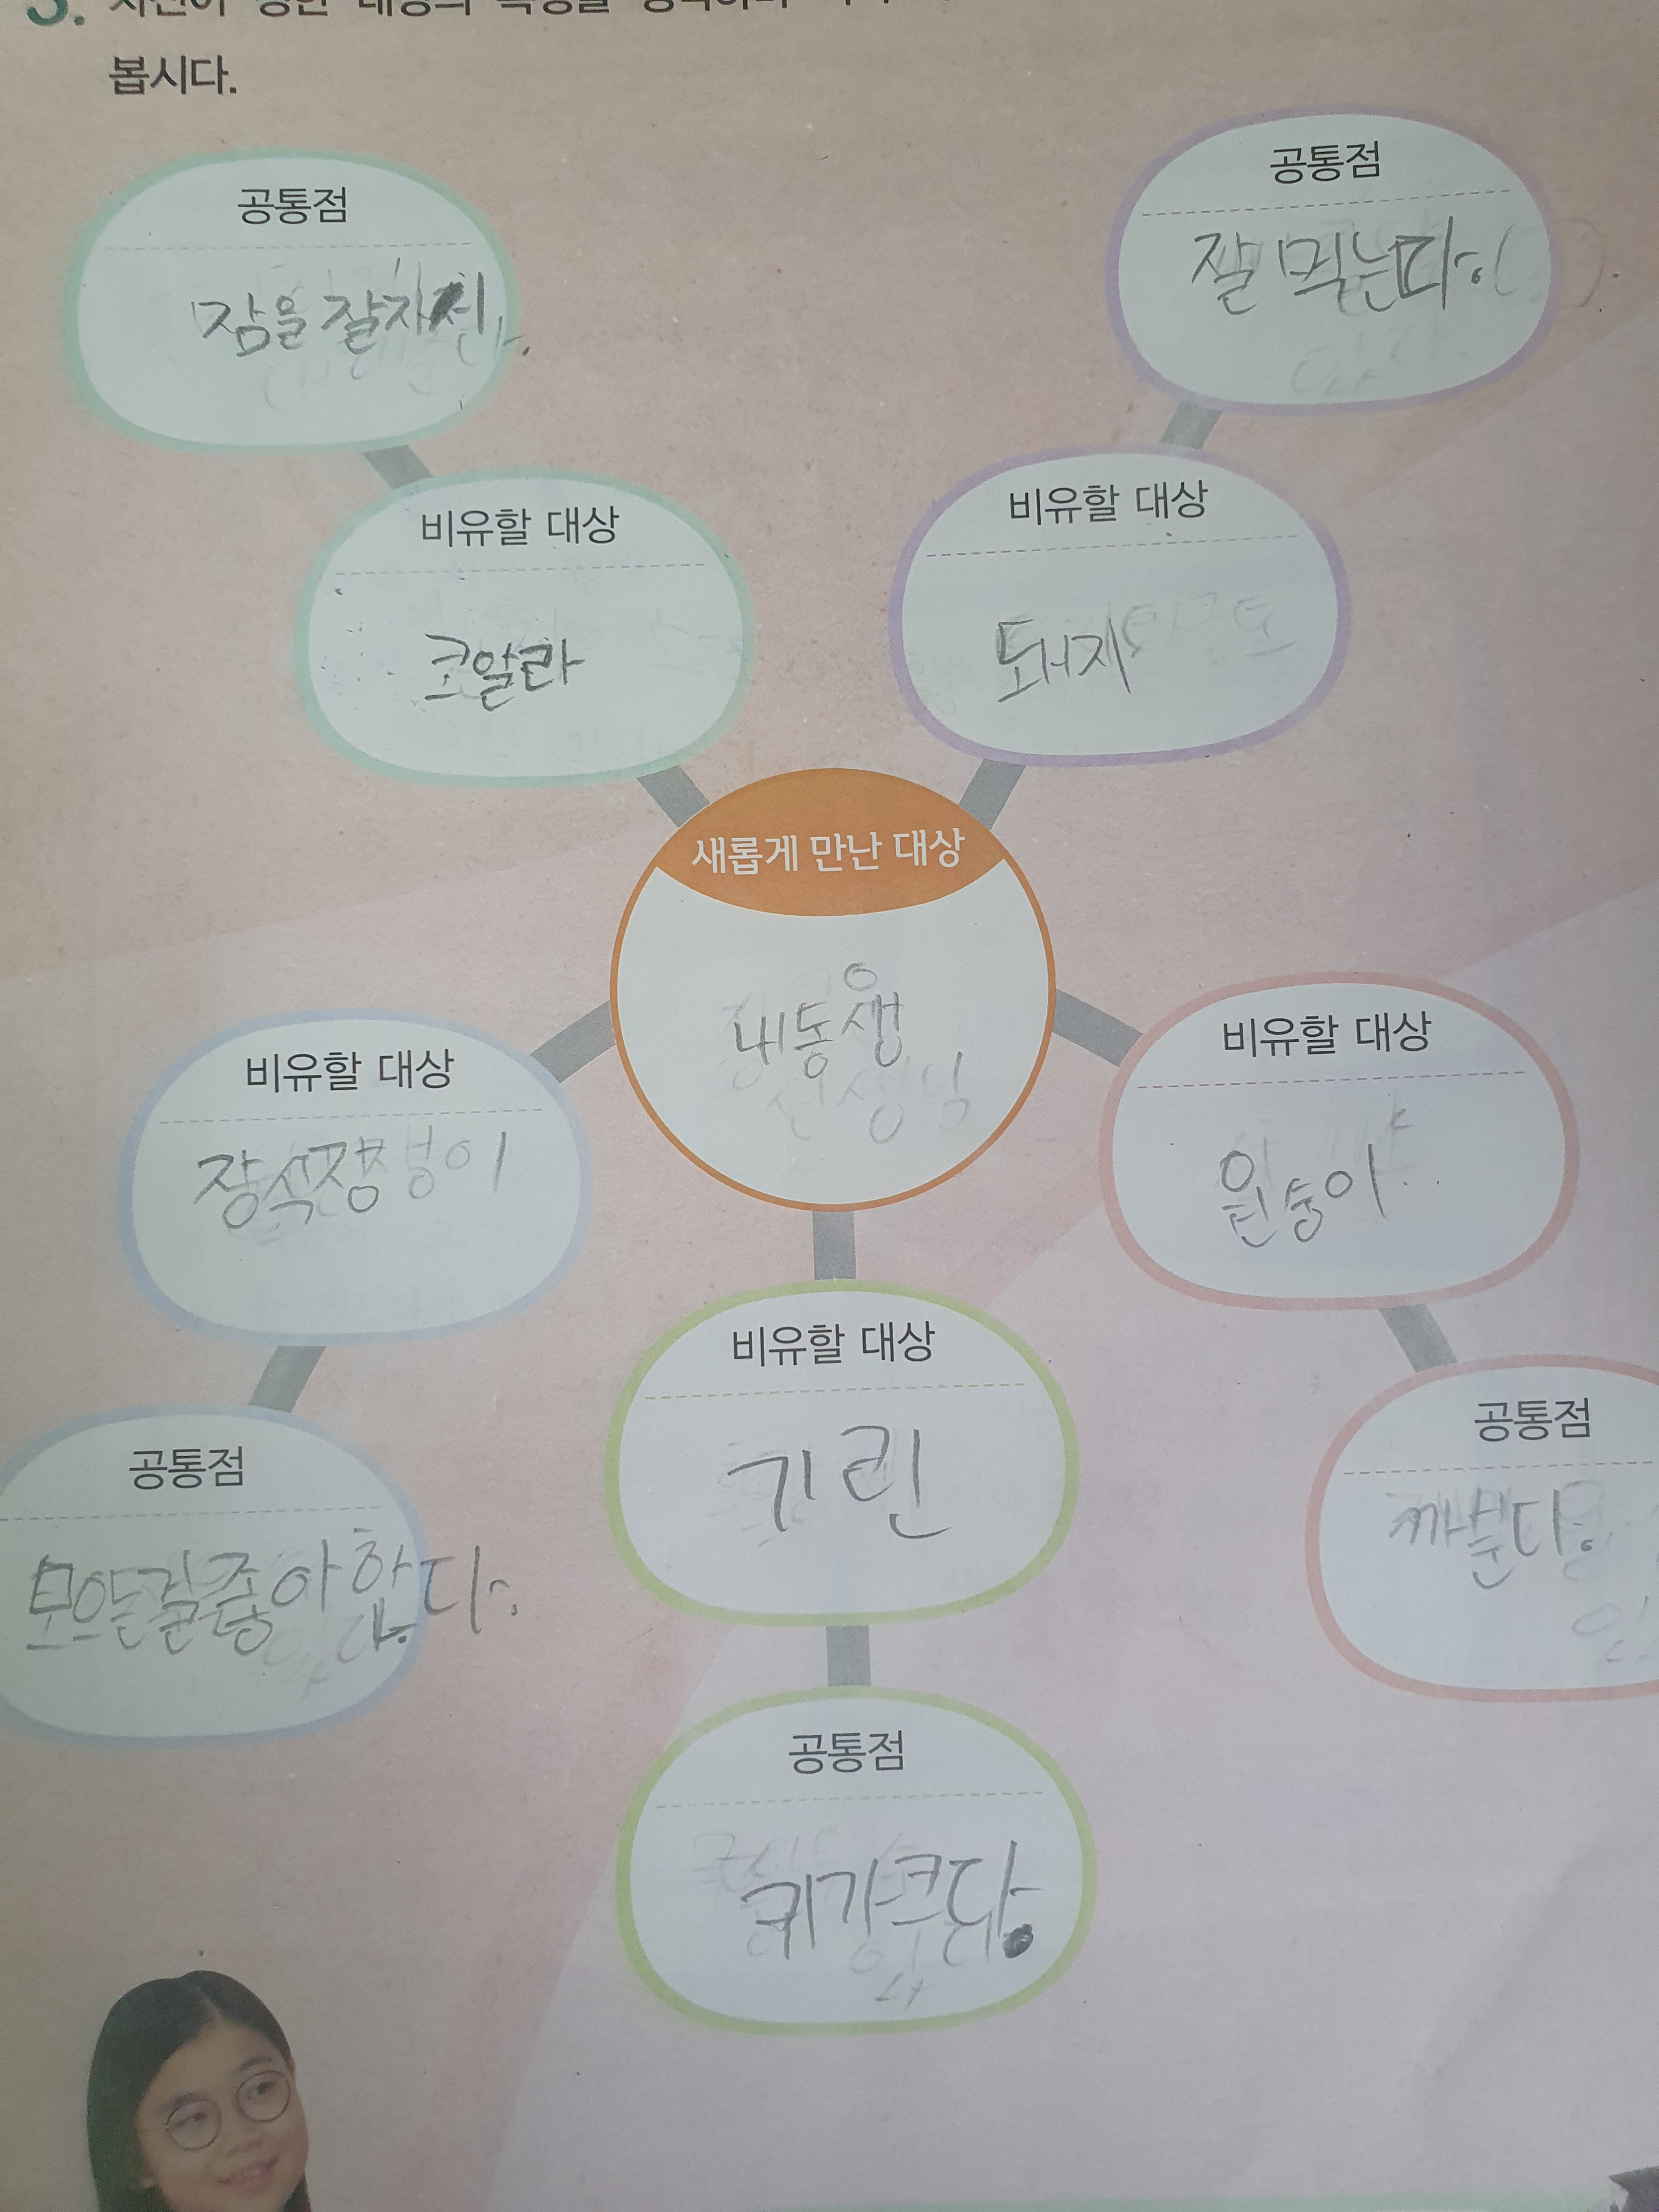 봅시다.
공통점
잠을 잘자
공통점
잘 먹는다.
비유할 대상
코알라
비유할 대상
돼지
새롭게 만난 대상
내동생
비유할 대상
장석쟁이
비유할 대상
원숭이
비유할 대상
기린
공통점
모으는걸좋아한다.
공통점
까분다.
공통점
키가크다.